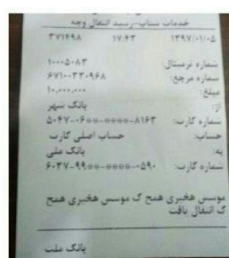 خدمات شتاب-رسید انتقال وجه
۱۳۹۷/۰۱/۰۵ ۱۷:۴۳ ۳۷۱۴۹۸
شماره ترمینال: ۱۰۰۰۵۰۸۳
شماره مرجع: ۶۷۱۰۳۳۰۹۶۸
مبلغ: ۱۰,۰۰۰,۰۰۰
از: بانک شهر
شماره کارت: ۵۰۴۷-۰۶**-****-۸۱۶۳
حساب: حساب اصلی کارت
به: بانک ملی
شماره کارت: ۶۰۳۷-۹۹**-****-۰۵۹۰
موسس هخبری همح ک موسس هخبری همح
ک انتقال یافت
بانک ملت